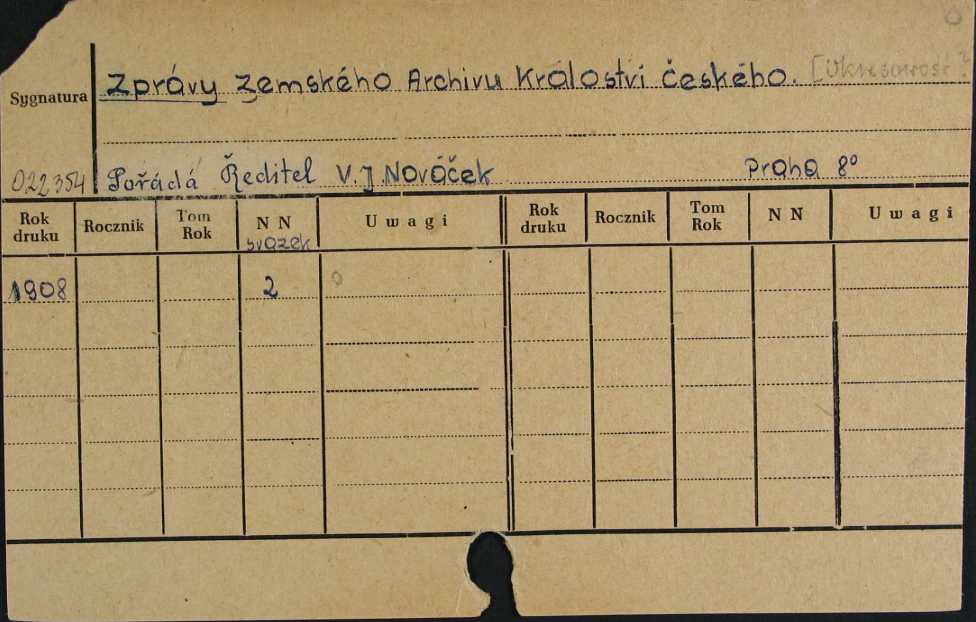 Zprávy zemského Archivu Královstvi českého.
Sygnatura
022354 Pořádá Ředitel V. J Nováček Praha 8°
Rok druku Rocznik Tom Rok N N svazek Uwagi Rok druku Rocznik Tom Rok N N Uwagi
1908 2 0